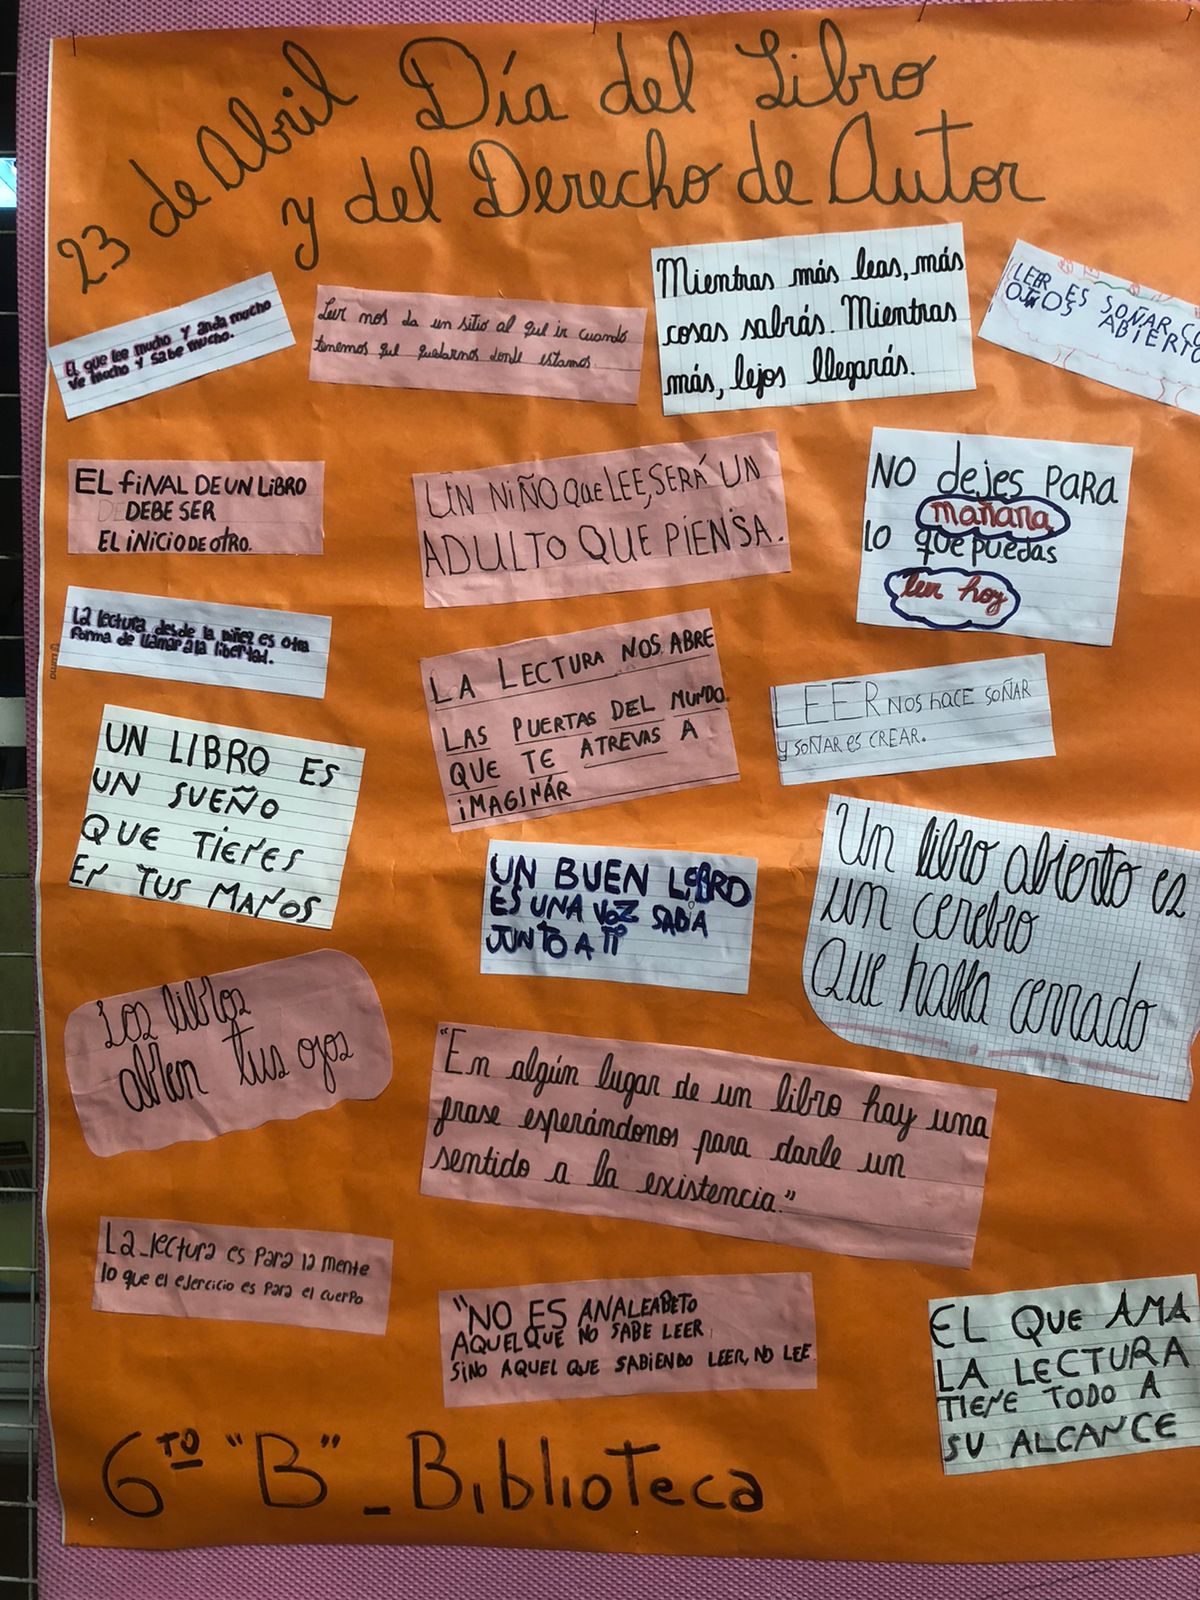 23 de Abril Día del Libro
y del Derecho de Autor
El que lee mucho y anda mucho
ve mucho y sabe mucho.
Leer nos da un sitio al que ir cuando
tenemos que quedarnos donde estamos.
Mientras más leas, más
cosas sabrás. Mientras
más, lejos llegarás.
LEER ES SOÑAR
OJOS ABIERTO
EL fiNAL DE UN LiBRO
DEBE SER
EL iNiCiO DE OtRO.
UN NiÑO QUE LEE, SERÁ UN
ADULTO QUE PIENSA.
NO dejes PARA
mañana
lo que puedas
leer hoy
La lectura desde la niñez es otra
forma de llamar a la libertad.
LA LECTURA NOS ABRE
LAS PUERTAS DEL MUNDO.
QUE TE ATREVAS A
iMAGINÁR
LEER NOS hACE SOÑAR
y SOÑAR ES CREAR.
UN LIBRO ES
UN SUEÑO
QUE TIENES
EN TUS MANOS
UN BUEN LiBRO
ES UNA VOZ SABIA
JUNTO A Ti
Un libro abierto es
un cerebro
Que habla cerrado
Los libros
abren tus ojos
"En algún lugar de un libro hay una
frase esperándonos para darle un
sentido a la existencia."
La lectura es para la mente
lo que el ejercicio es para el cuerpo
"NO ES ANALFABETO
AQUEL QUE NO SABE LEER
SiNO AQUEL QUE SABIENDO LEER, NO LEE
EL QUE AMA
LA LECTURA
TIENE TODO A
SU ALCANCE
6TO "B" - Biblioteca